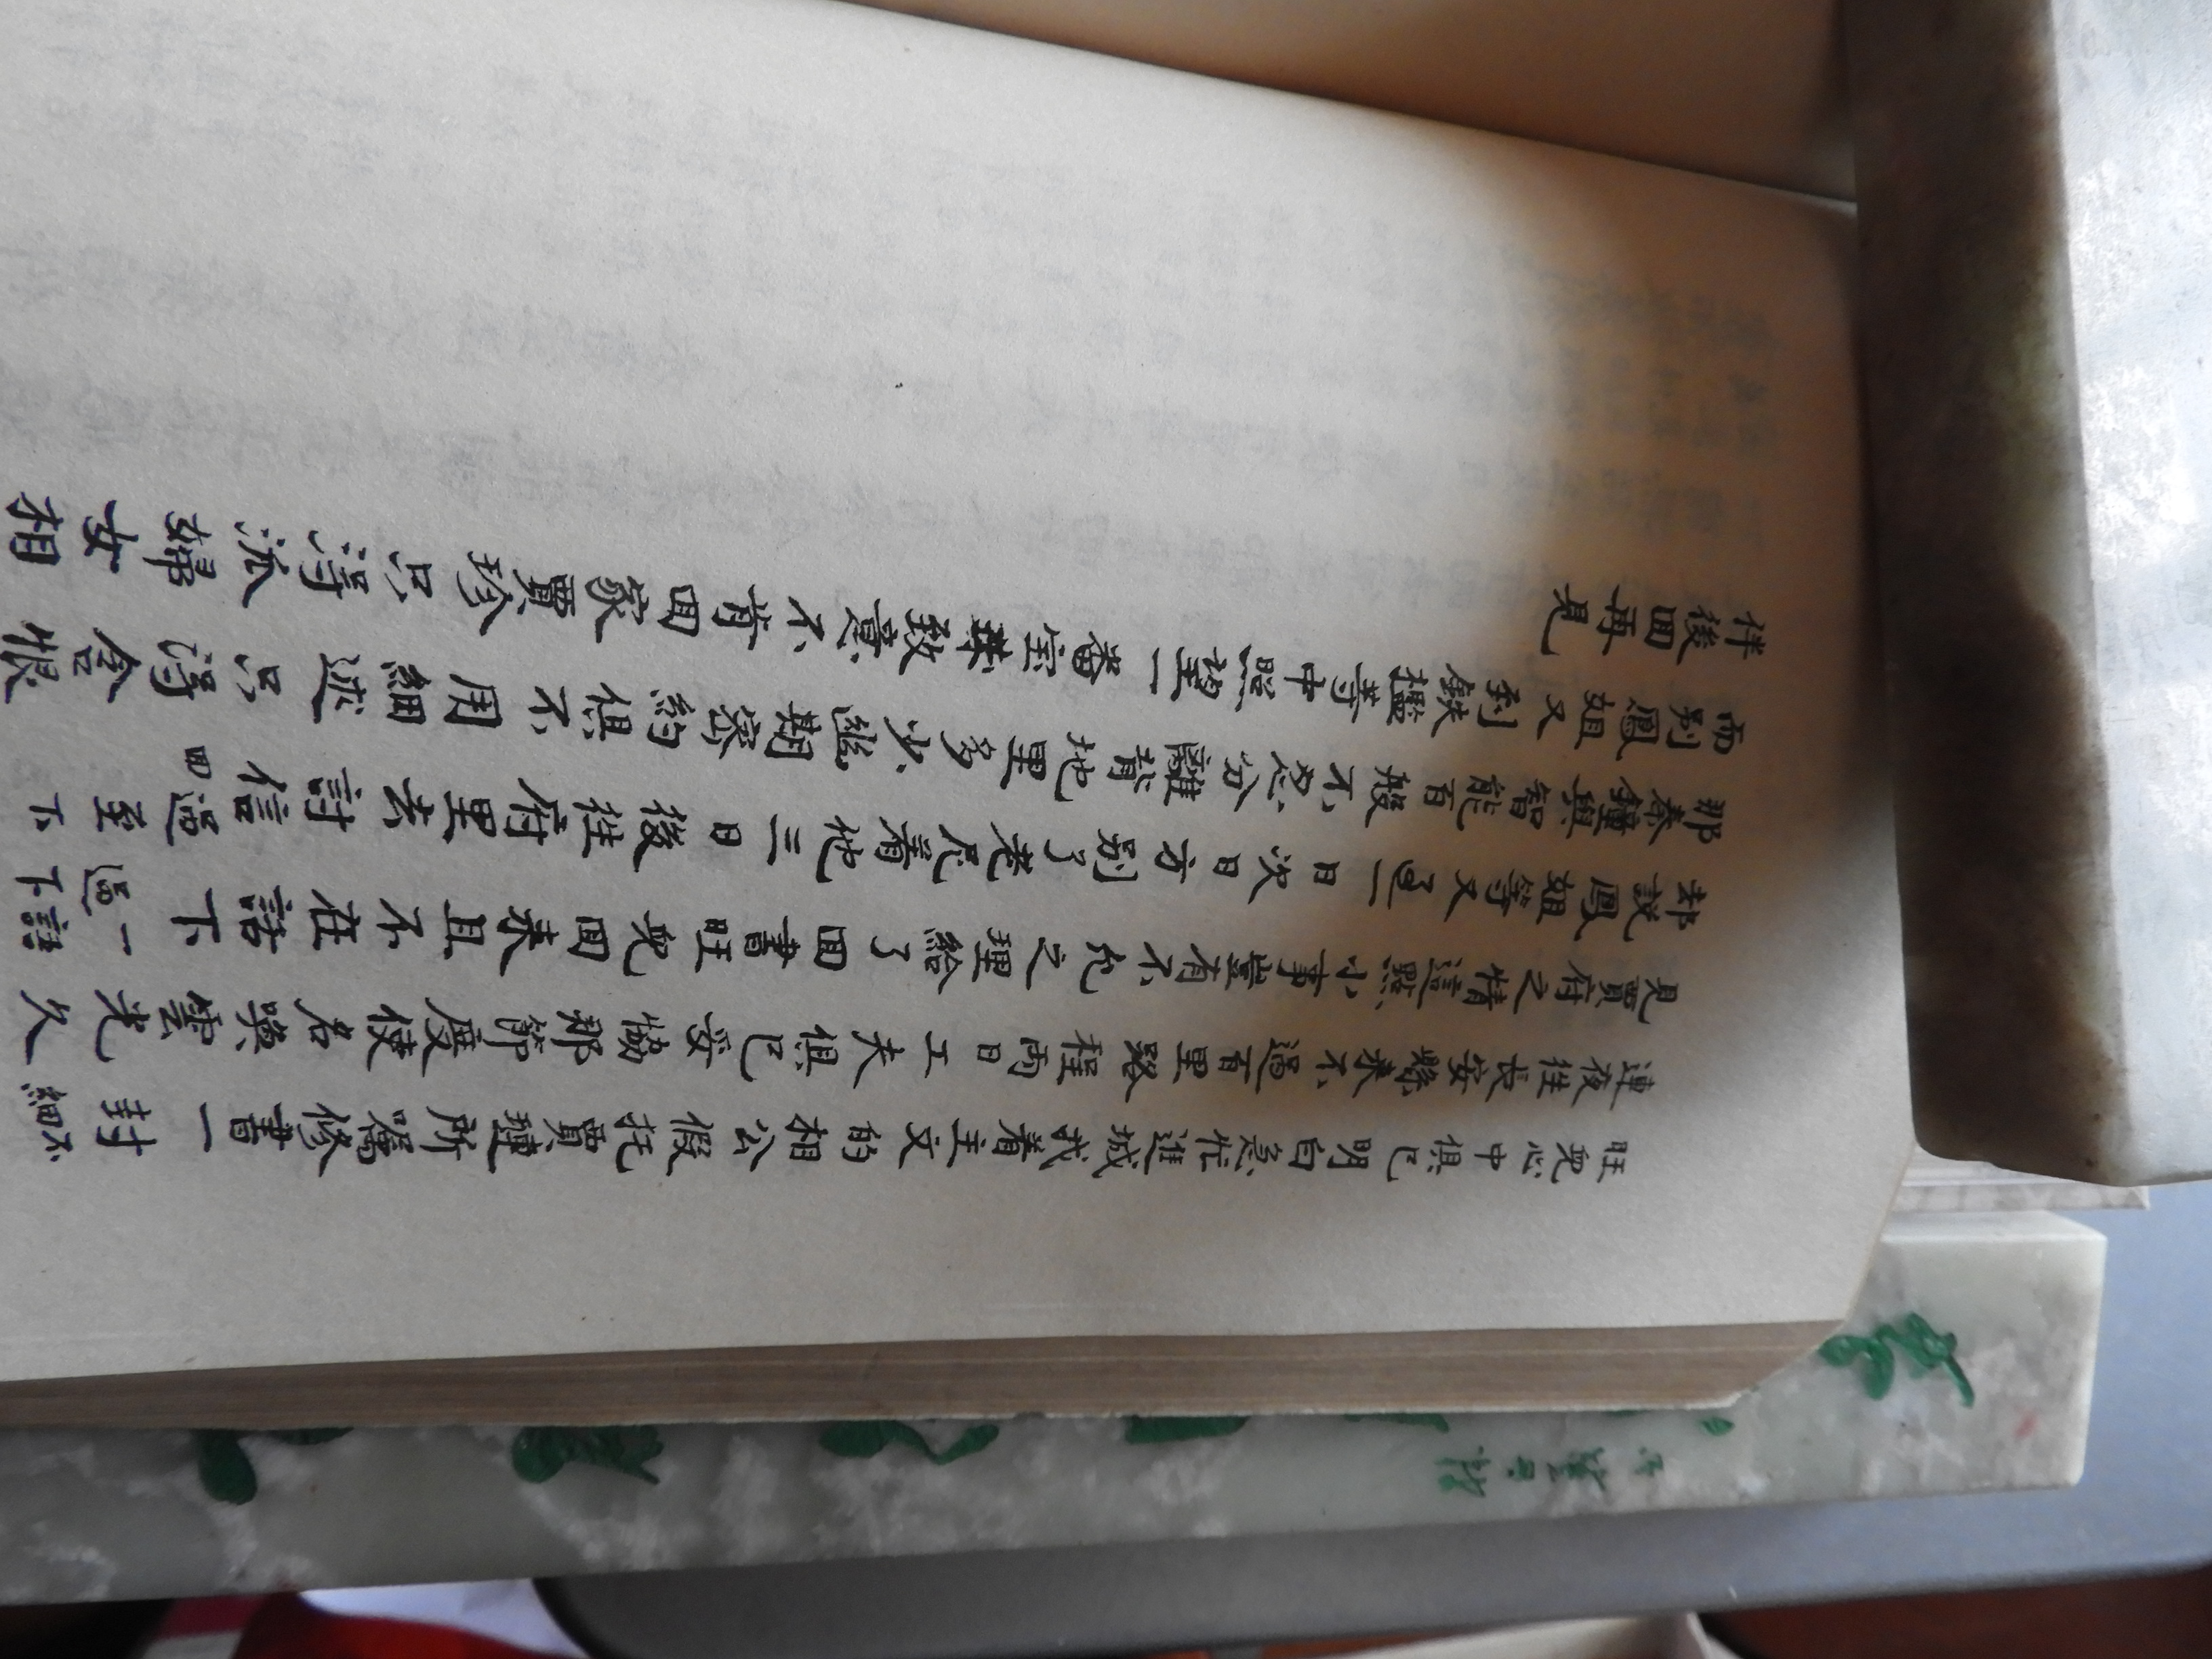 旺兒心中俱已明白急忙進城找着主文的相公假托賈璉所囑修書一封細不
連夜往長安縣來不過百里路程兩日工夫俱已妥協那節度使名喚雲光久
見賈府之情這點小事豈有不允之理給了回書旺兒回來且不在話下
却說鳳姐等又過一日次日方別了老尼着他三日後往府里去討信過至下回
那秦鐘與智能百般不忍分離背地里多少幽期密約俱不用細述只得含恨
而別鳳姐又到鉄檻寺中照望一番宝珠致意不肯回家賈珍只得派婦女相
伴後面再見